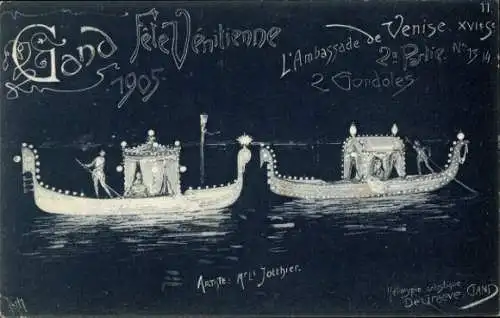 11
Gand Fête Vénitienne
1905
L'Ambassade de Venise. XVIe S.
2e Partie. Nos 13 14
2 Gondoles
Artiste:
Héliotypie artistique
De Graeve GAND